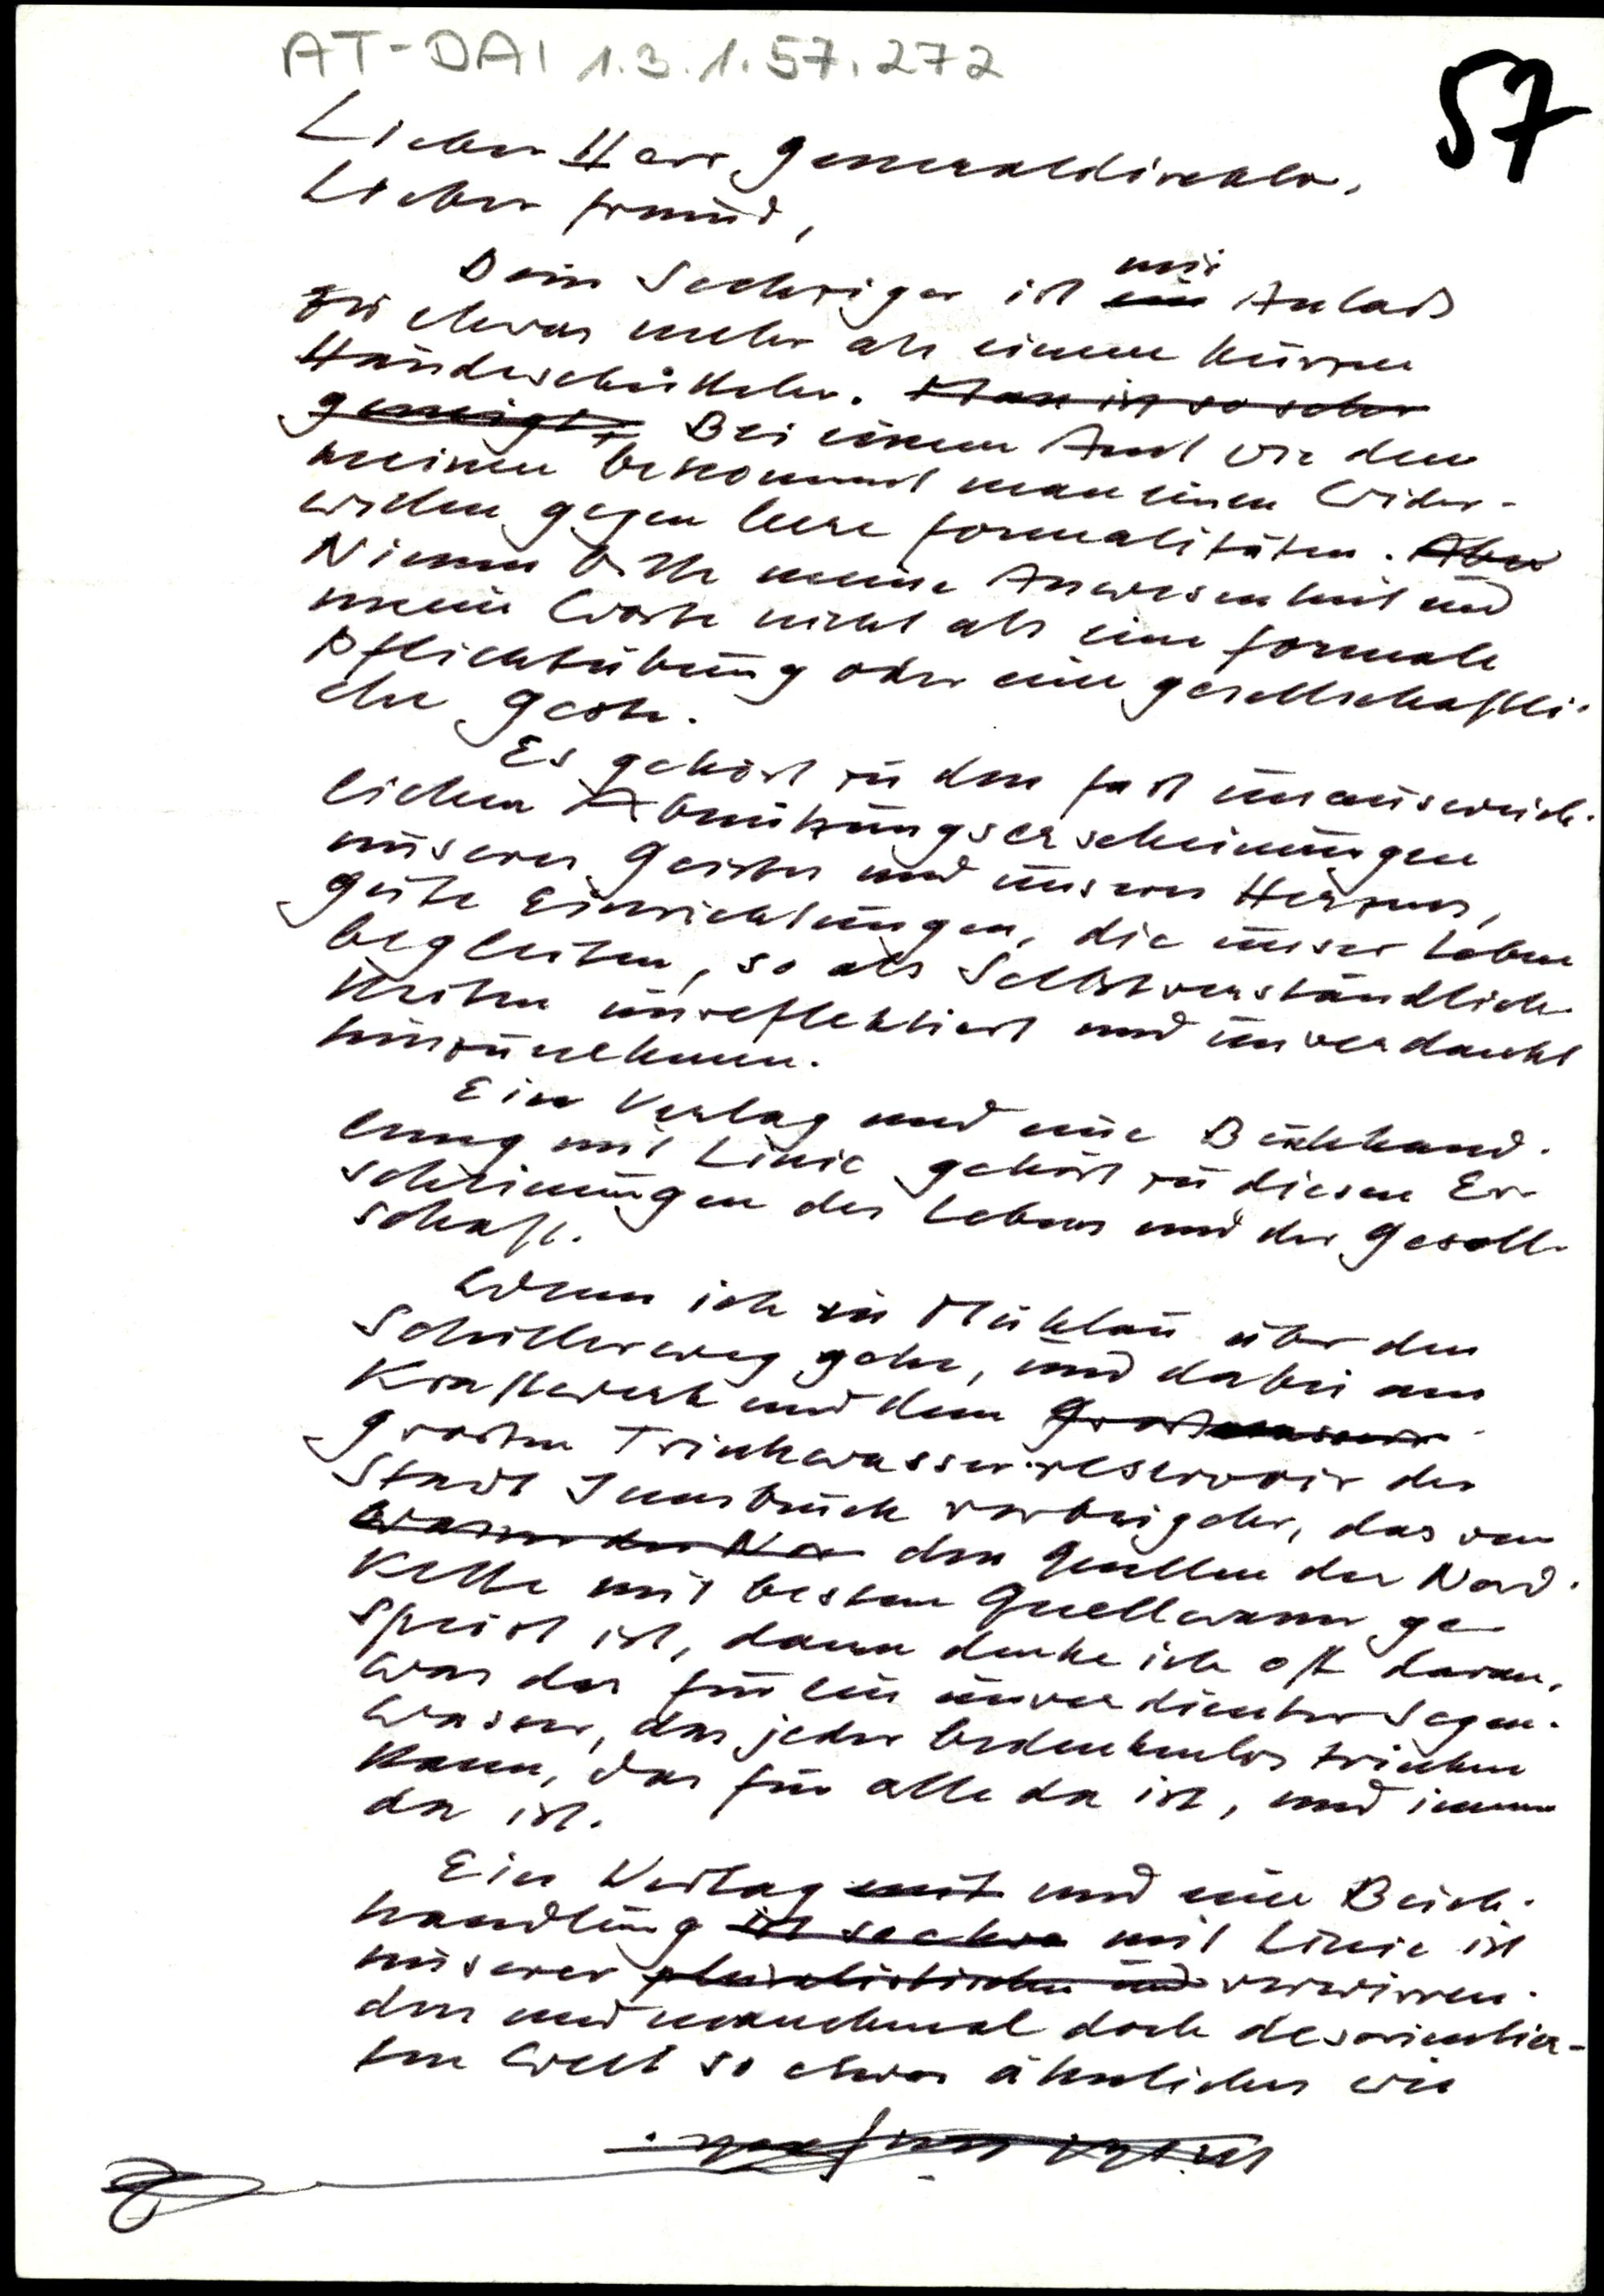 AT-DAI 1.3.1.57.272
57
Lieber Herr Generaldirektor,
Lieber Freund,
mir
Dein Sechziger ist ein Anlaß
zu etwas mehr als einem kurzen
Händeschütteln. Man ist so sehr
geneigt, Bei einem Amt wie dem
meinen bekommt man einen Wider-
willen gegen leere Formalitäten. Aber
Nimm bitte meine Anwesenheit und
meine Worte nicht als eine formale
Pflichtübung oder eine gesellschaftli-
che Geste.
Es gehört zu den fast unausweich-
lichen Abnützungserscheinungen
unseres Geistes und unseres Herzens,
gute Einrichtungen, die unser Leben
begleiten, so als Selbstverständlich-
keiten unreflektiert und unverdankt
hinzunehmen.
Ein Verlag und eine Buchhand-
lung mit Linie gehört zu diesen Er-
scheinungen des Lebens und der Gesell-
schaft.
Wenn ich in Mühlau über den
Schillerweg gehe, und dabei am
Kraftwerk und dem Großwasserr-
großen Trinkwasser-reservoir der
Stadt Innsbruck vorbeigehe, das von
Wasser der No den Quellen der Nord-
kette mit bestem Quellwasser ge-
speist ist, dann denke ich oft daran,
was das für ein unverdienter Segen.
Wasser, das jeder bedenkenlos trinken
kann, das für alle da ist, und immer
da ist.
Ein Verlag mit und eine Buch-
handlung ist sechzig mit Linie ist
unserer pluralistischen und verwirren-
den und manchmal doch desorientier-
ten Welt so etwas ähnliches wie